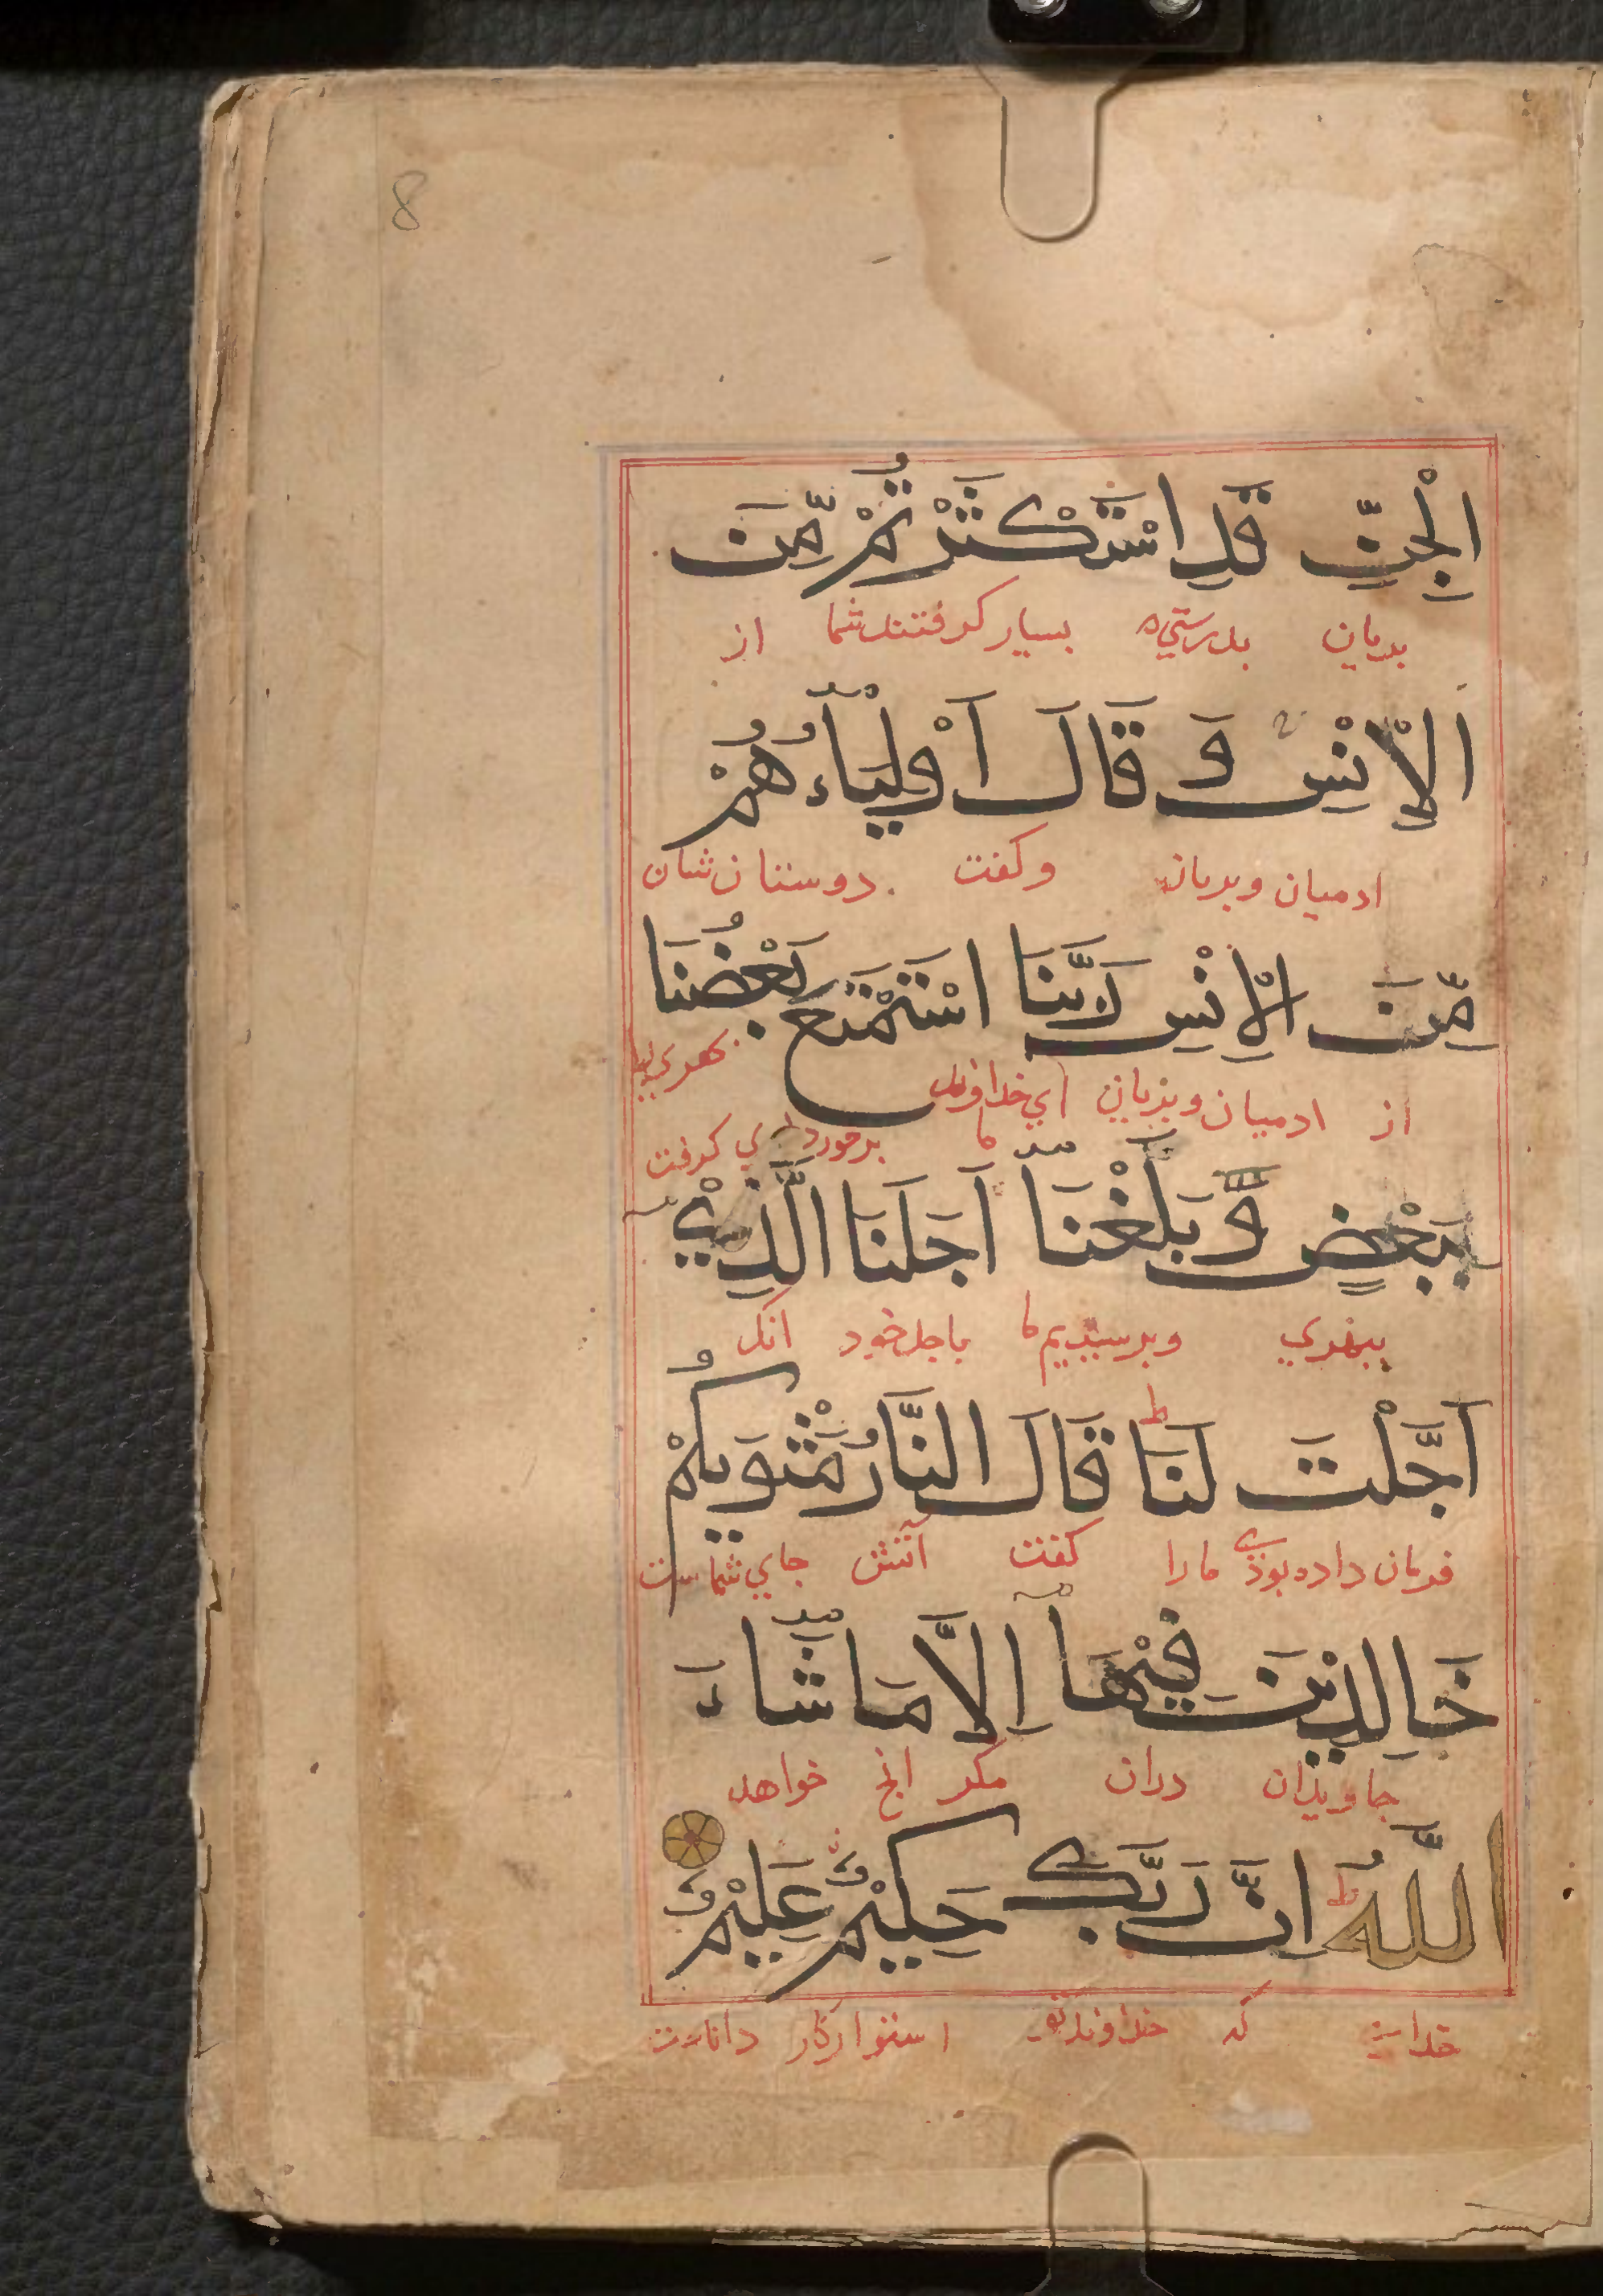 8
الْجِنِّ قَدِ اسْتَكْثَرْتُمْ مِّنَ
بريان بدرستي بسيار گرفتند شما از
الْاِنْسِ وَ قَالَ اَوْلِيَاۤءُهُمْ
ادميان وبريان وكفت دوستان شان
مِّنَ الْاِنْسِ رَبَّنَا اسْتَمْتَعَ بَعْضُنَا
از ادميان وبريان اي خداوند ما برخورداري كرفت
بِبَعْضٍ وَّ بَلَغْنَاۤ اَجَلَنَا الَّذِيْۤ
ببهري وبرسيديم ما باجل خود انك
اَجَّلْتَ لَنَا ط قَالَ النَّارُ مَثْوٰيكُمْ
فرمان داده بوذي ما را كفت آتش جاي شماست
خَالِدِيْنَ فِيْهَاۤ اِلَّا مَا شَاۤءَ
جاويذان دران مكر انچ خواهد
اللّٰهُ ط اِنَّ رَبَّكَ حَكِيْمٌ عَلِيْمٌ
كه خداوند تو استواركار داناست